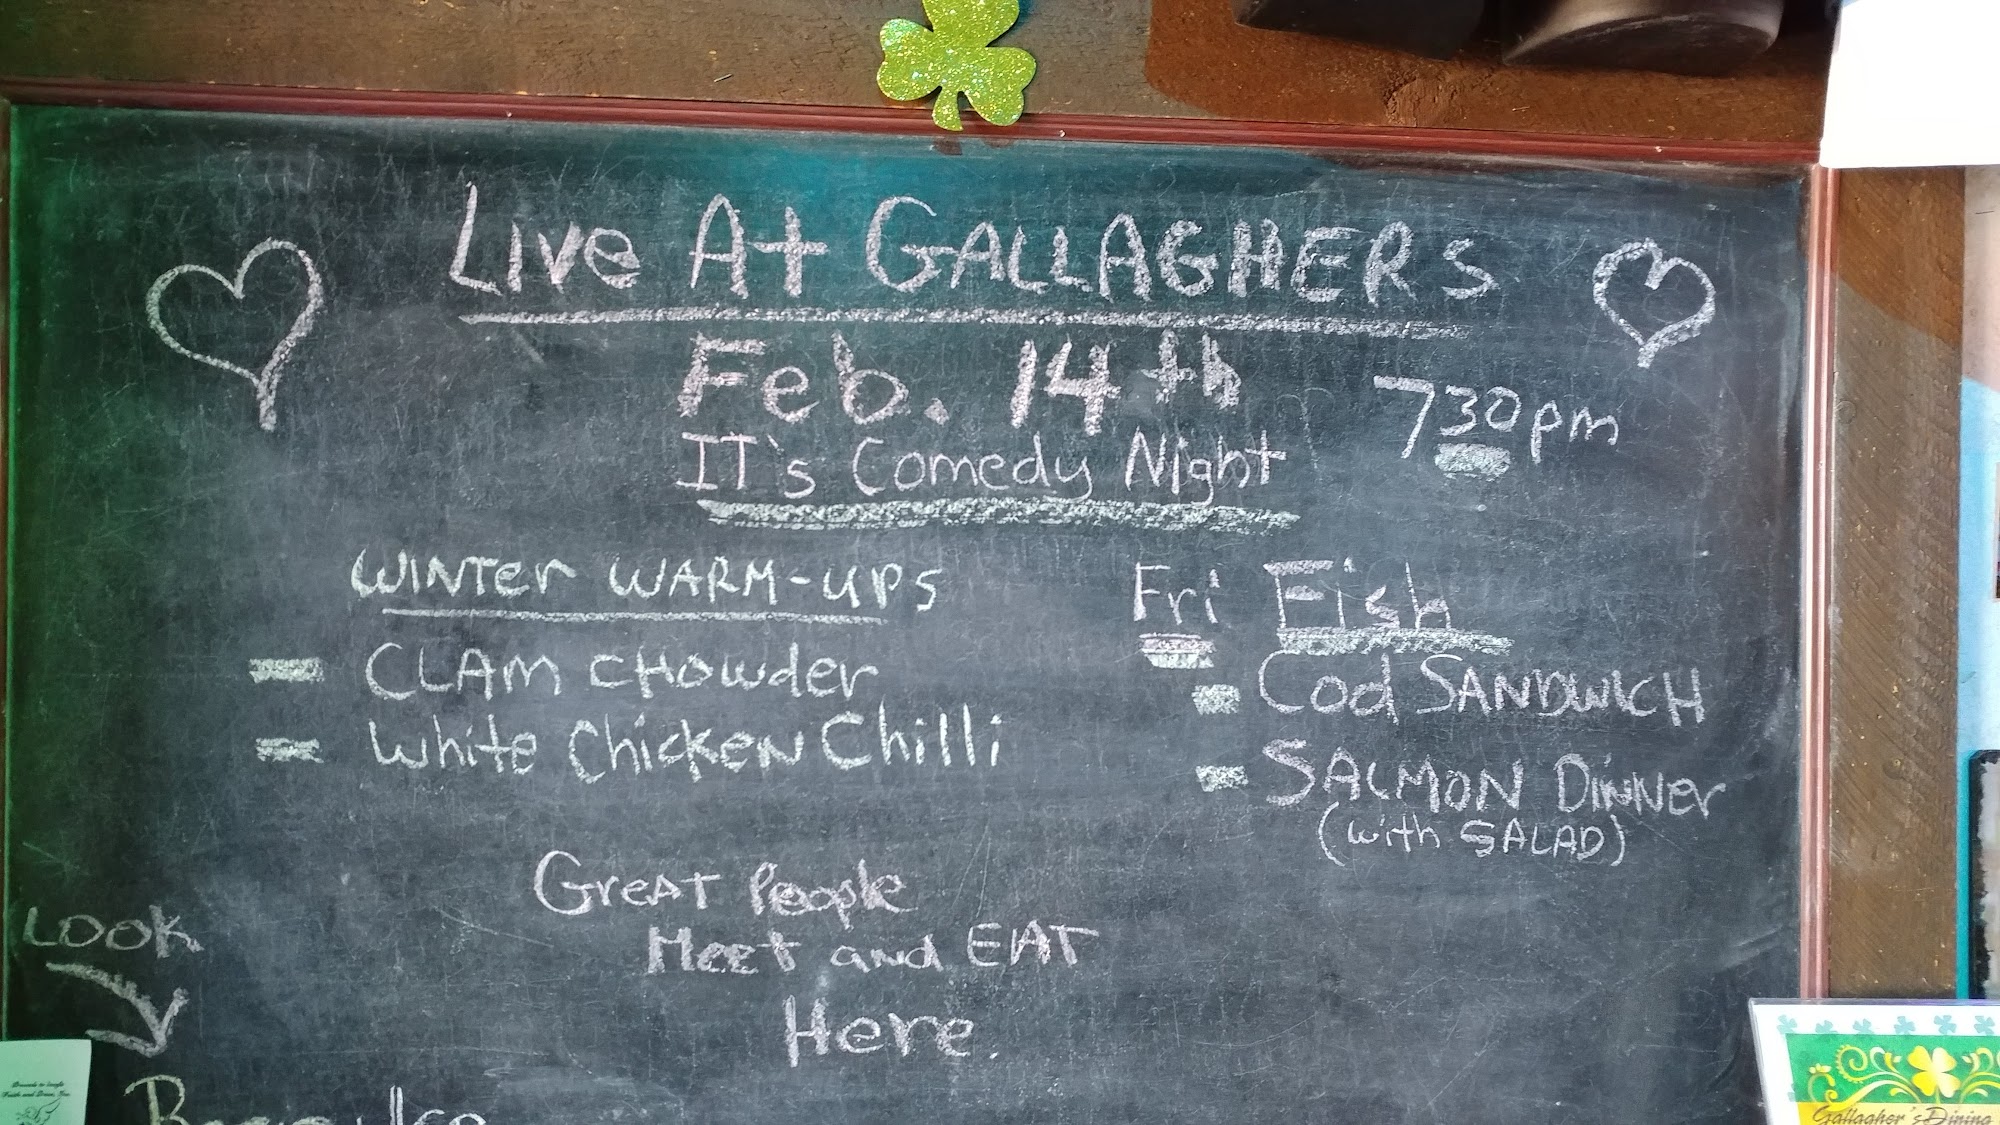 Live At GALLAGHERS
Feb. 14th
730pm
IT's Comedy Night
WINTer WARM-UPS
CLAM CHOWder
White ChicKeN Chilli
Fri Fish
Cod SANDWICH
SALMON DiNNer
(with SALAD)
GreAT People
Meet and EAT
Here.
LOOK
Gallagher's Dining